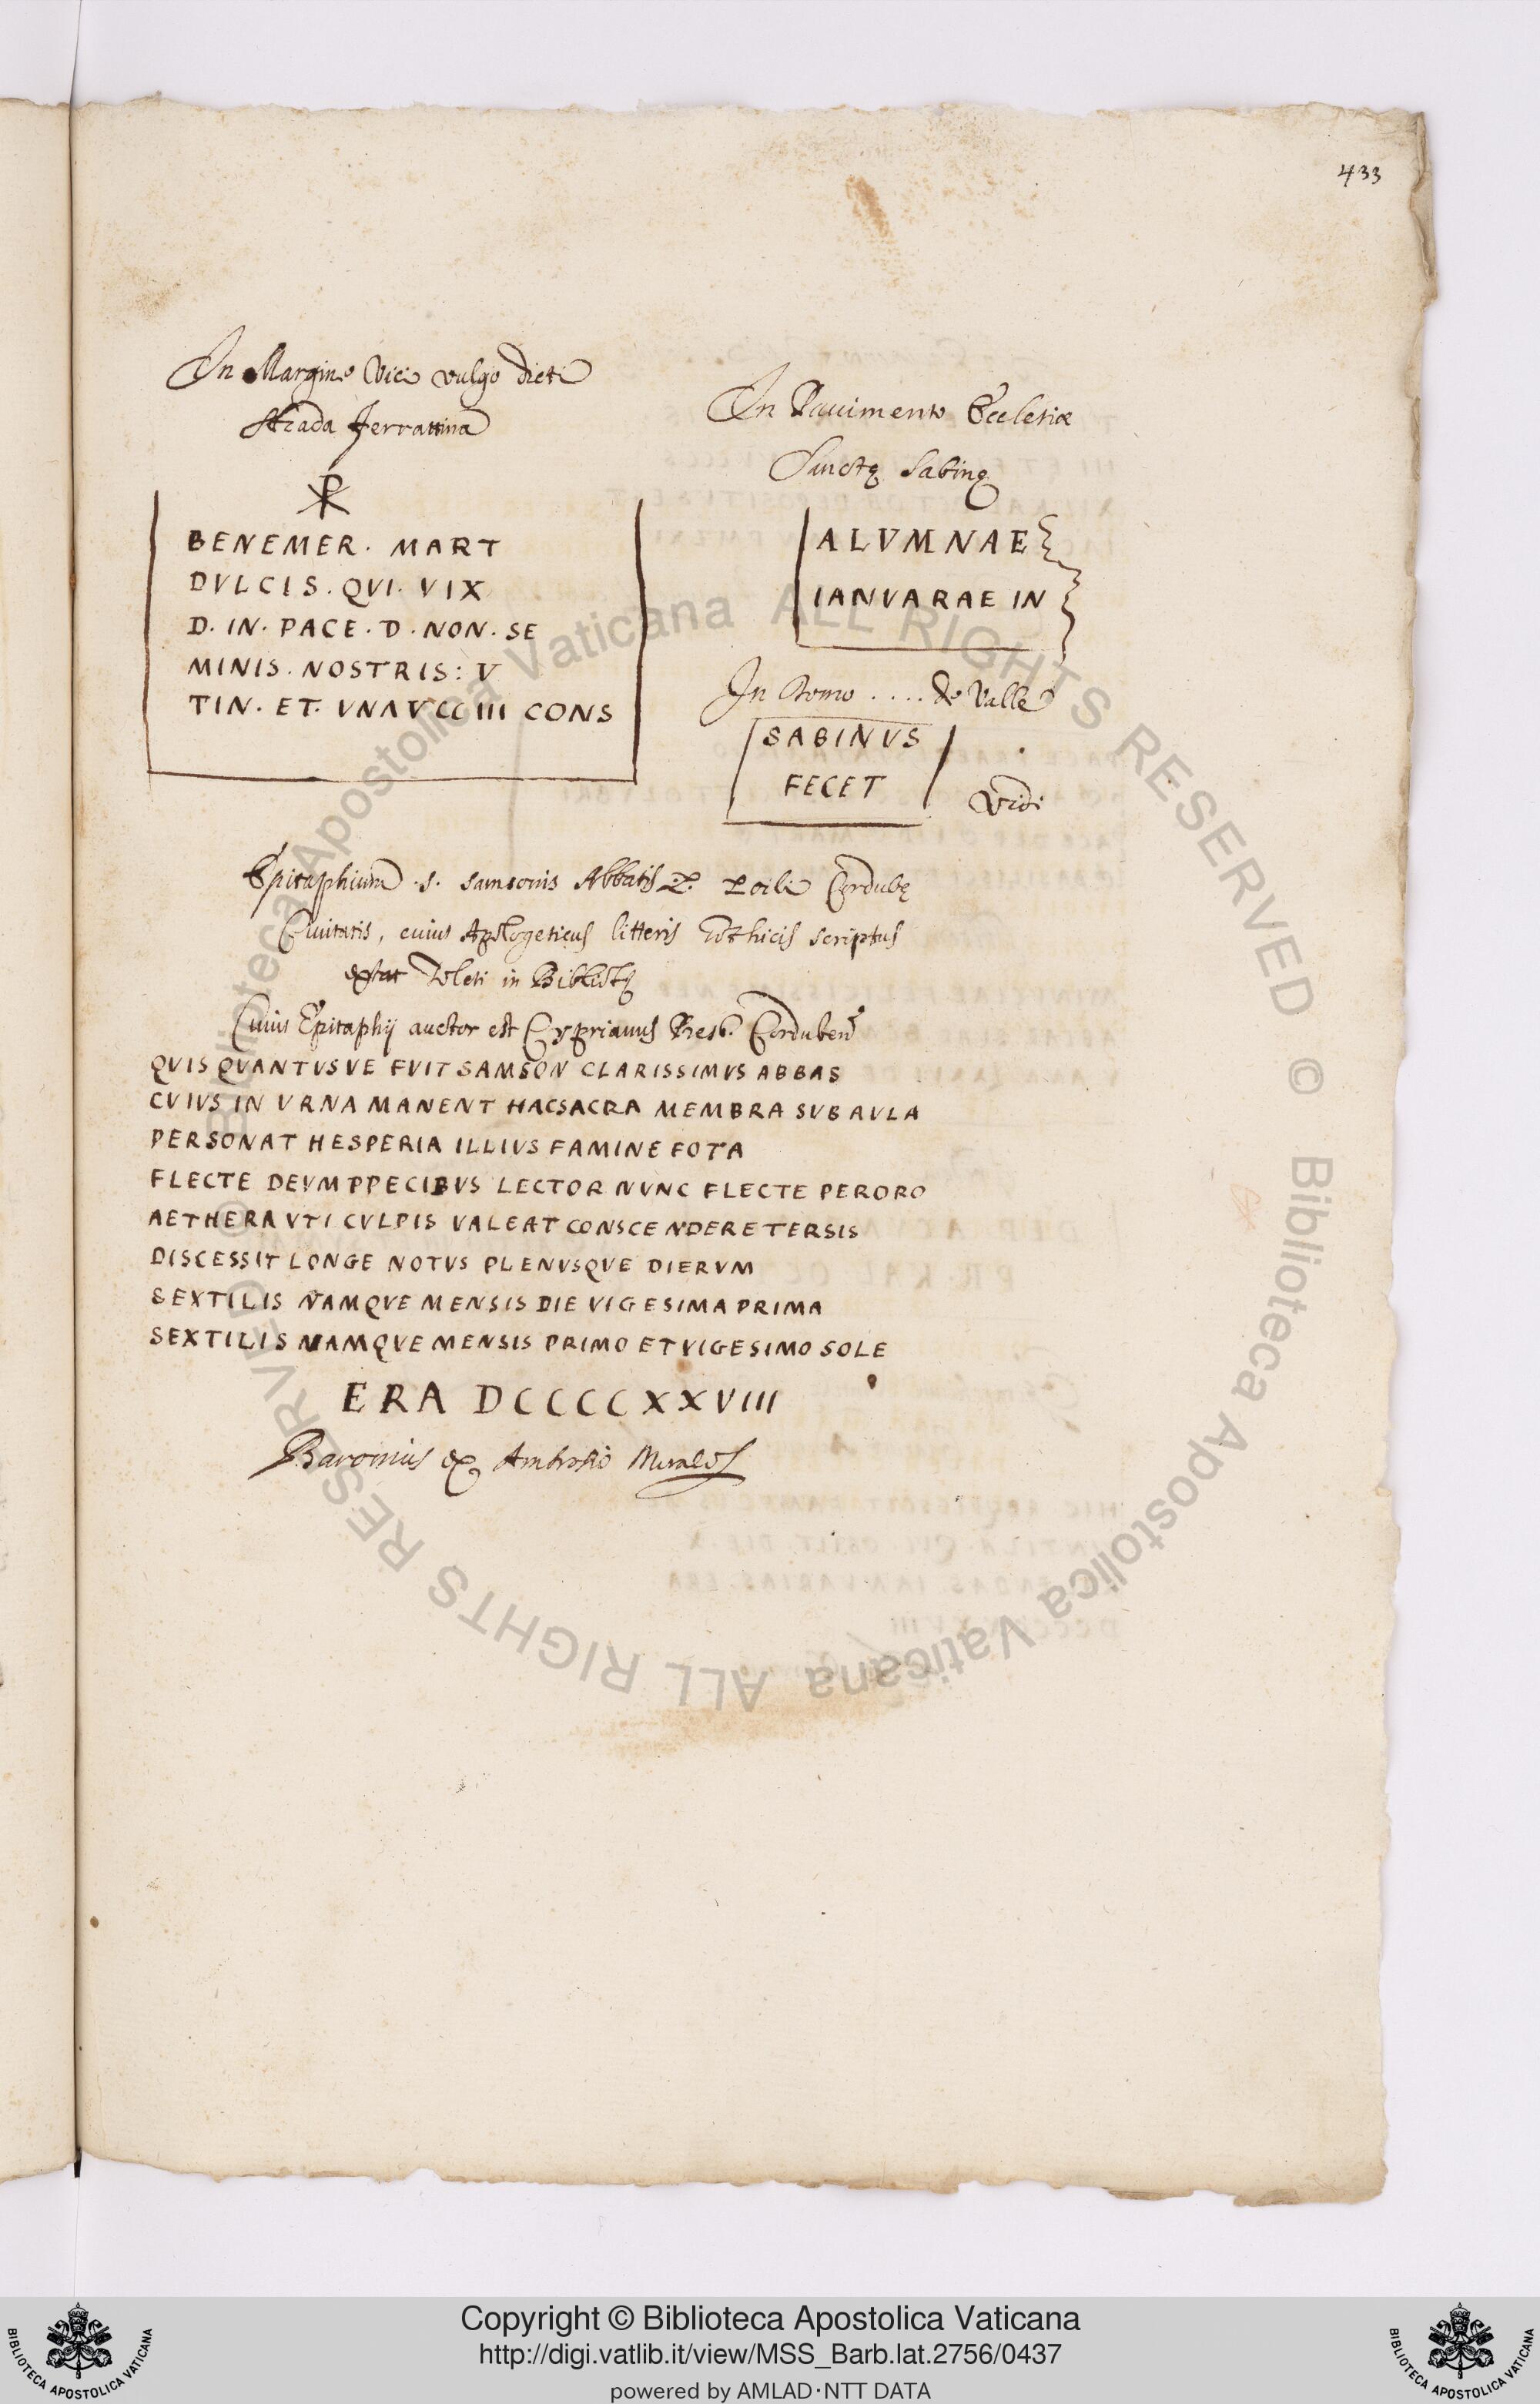 433
In Margine Vici vulgo dicti
strada ferrattina
☧
BENEMER · MART
DVLCIS · QVI · VIX
D · IN · PACE · D · NON · SE
MINIS · NOSTRIS : V
TIN · ET · VNA VCC III CONS
In Pauimento Ecclesiæ
Sanctę Sabinę
ALVMNAE
IANVARAE IN
In Domo .... de Valle
SABINVS
FECET
Vidi
Epitaphium S. Samsonis Abbatis Cordubę
Ciuitatis, cuius Apologeticus litteris Gothicis scriptus
extat Toleti in Bibliotę
Cuius Epitaphij auctor est Cyprianus Presb. Cordubens
QVIS QVANTVSVE FVIT SAMSON CLARISSIMVS ABBAS
CVIVS IN VRNA MANENT HACSACRA MEMBRA SVB AVLA
PERSONAT HESPERIA ILLIVS FAMINE FOTA
FLECTE DEVM PPECIBVS LECTOR NVNC FLECTE PERORO
AETHERA VTI CVLPIS VALEAT CONSCENDERE TERSIS
DISCESSIT LONGE NOTVS PLENVSQVE DIERVM
SEXTILIS NAMQVE MENSIS DIE VIGESIMA PRIMA
SEXTILIS NAMQVE MENSIS PRIMO ET VIGESIMO SOLE
ERA DCCCCXXVIII
Baronius ex Ambrosio
Biblioteca Apostolica Vaticana ALL RIGHTS RESERVED © Biblioteca Apostolica Vaticana ALL RIGHTS RESERVED ©
BIBLIOTECA APOSTOLICA VATICANA
Copyright © Biblioteca Apostolica Vaticana
http://digi.vatlib.it/view/MSS_Barb.lat.2756/0437
powered by AMLAD·NTT DATA
BIBLIOTECA APOSTOLICA VATICANA